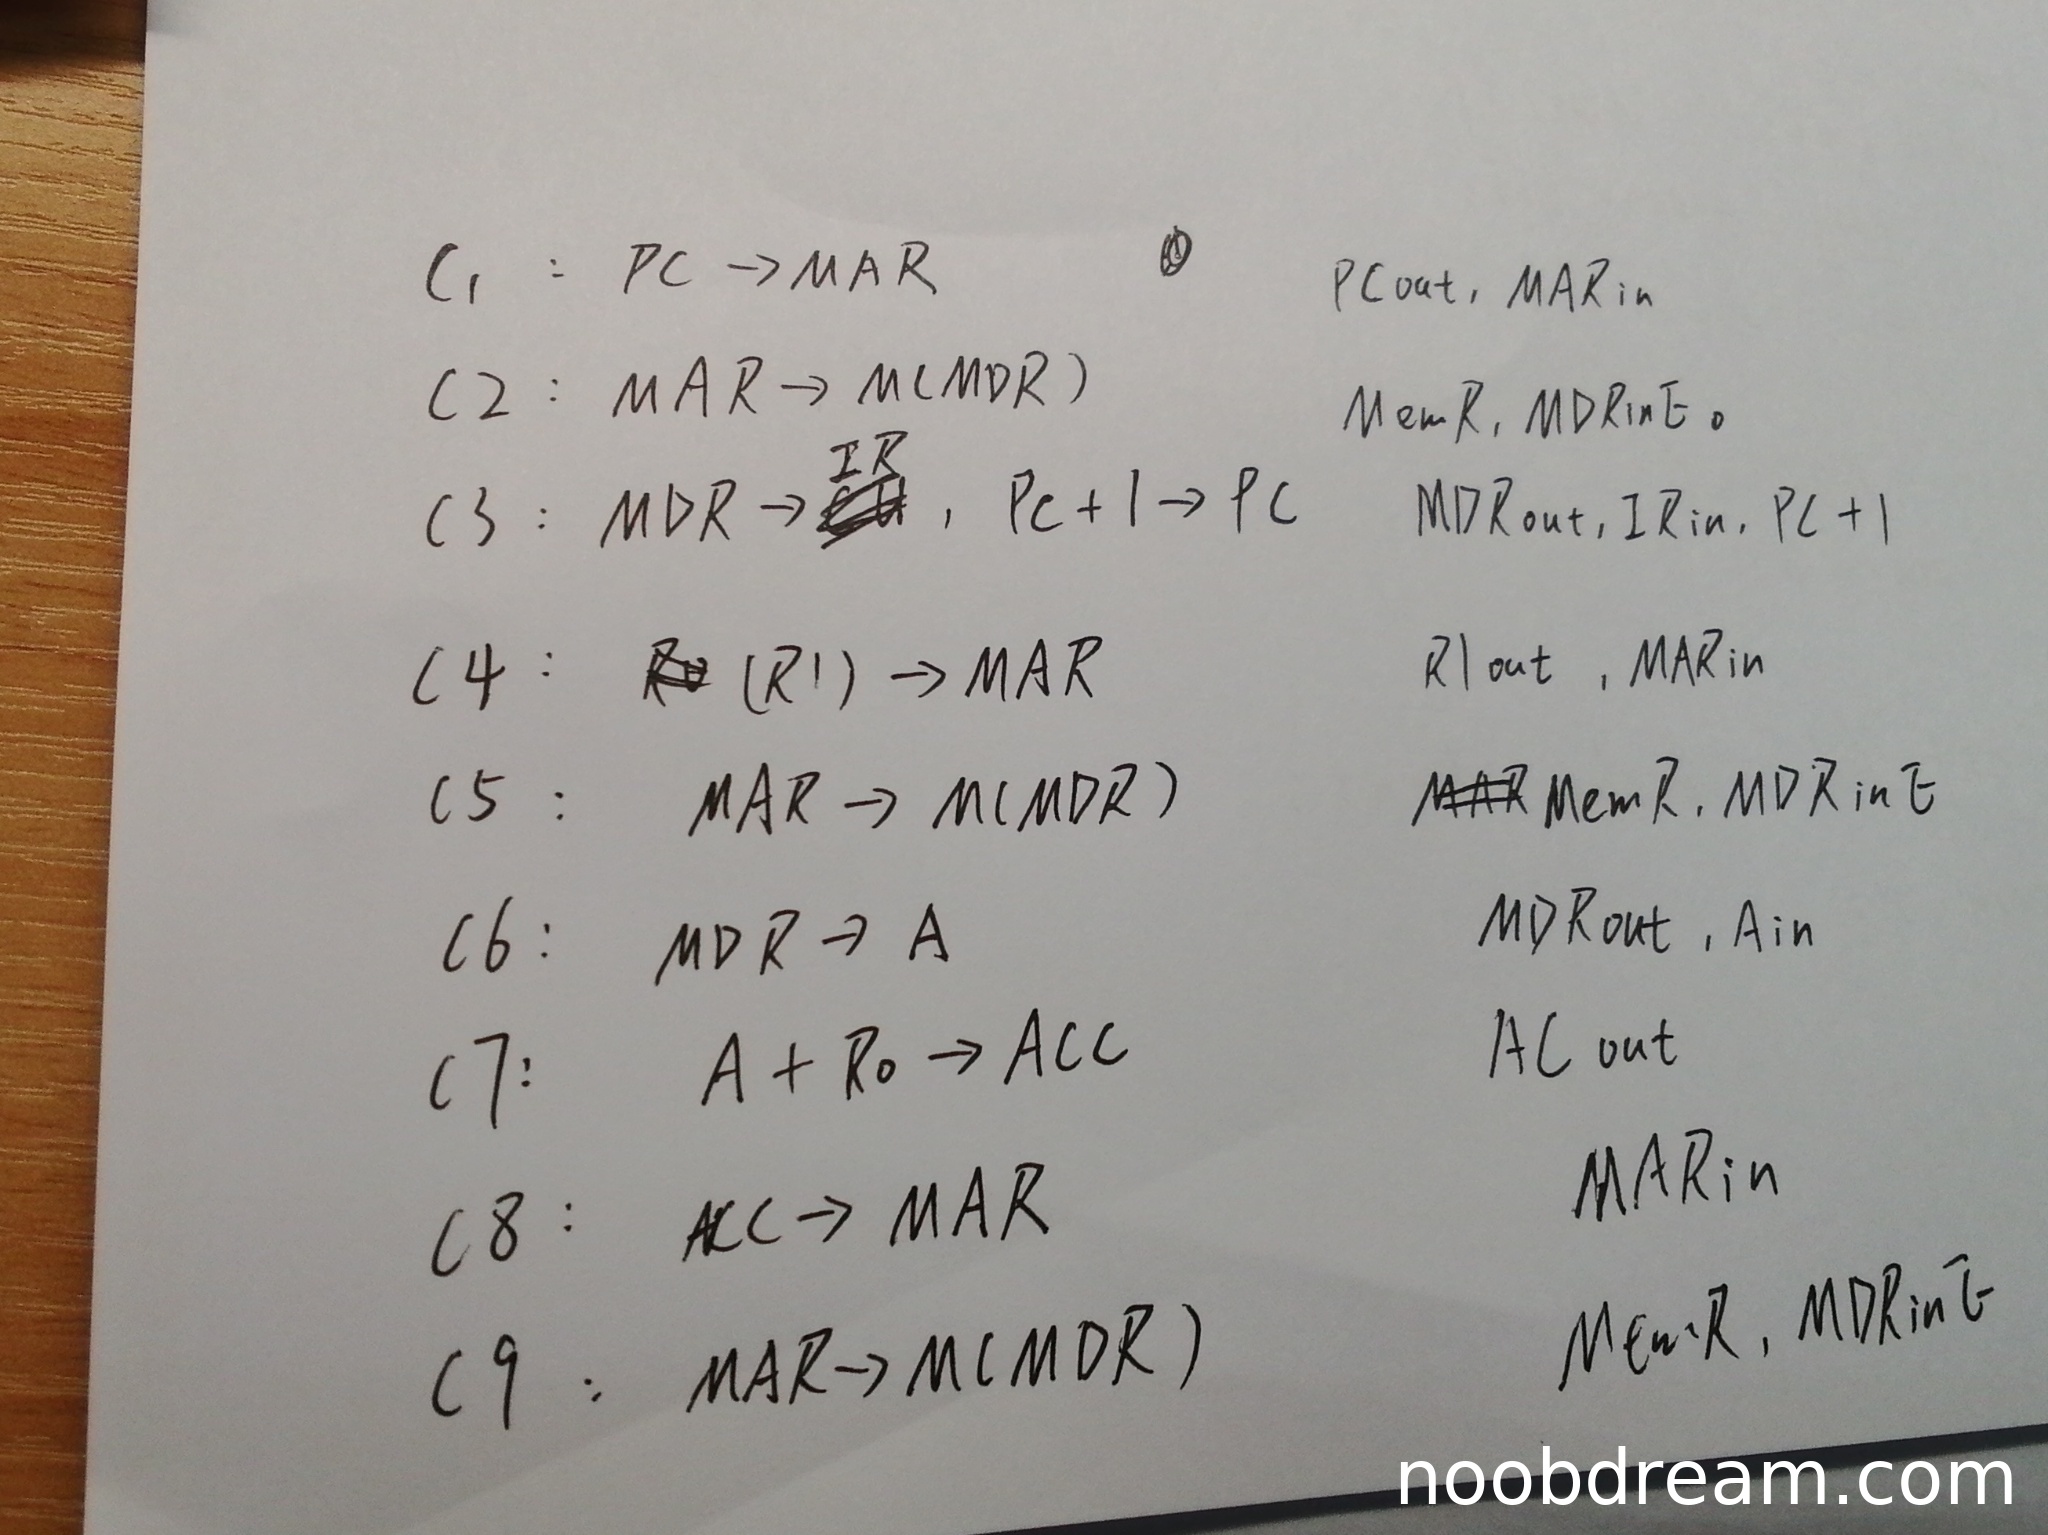 C1 : PC → MAR PCout, MARin
C2 : MAR → M(MDR) MemR, MDRinE。
C3 : MDR → IR , PC+1 → PC MDRout, IRin, PC+1
C4 : (R1) → MAR R1out , MARin
C5 : MAR → M(MDR) MemR, MDRinE
C6 : MDR → A MDRout , Ain
C7 : A + R0 → ACC ACout
C8 : ACC → MAR MARin
C9 : MAR → M(MDR) MemR, MDRinE
noobdream.com